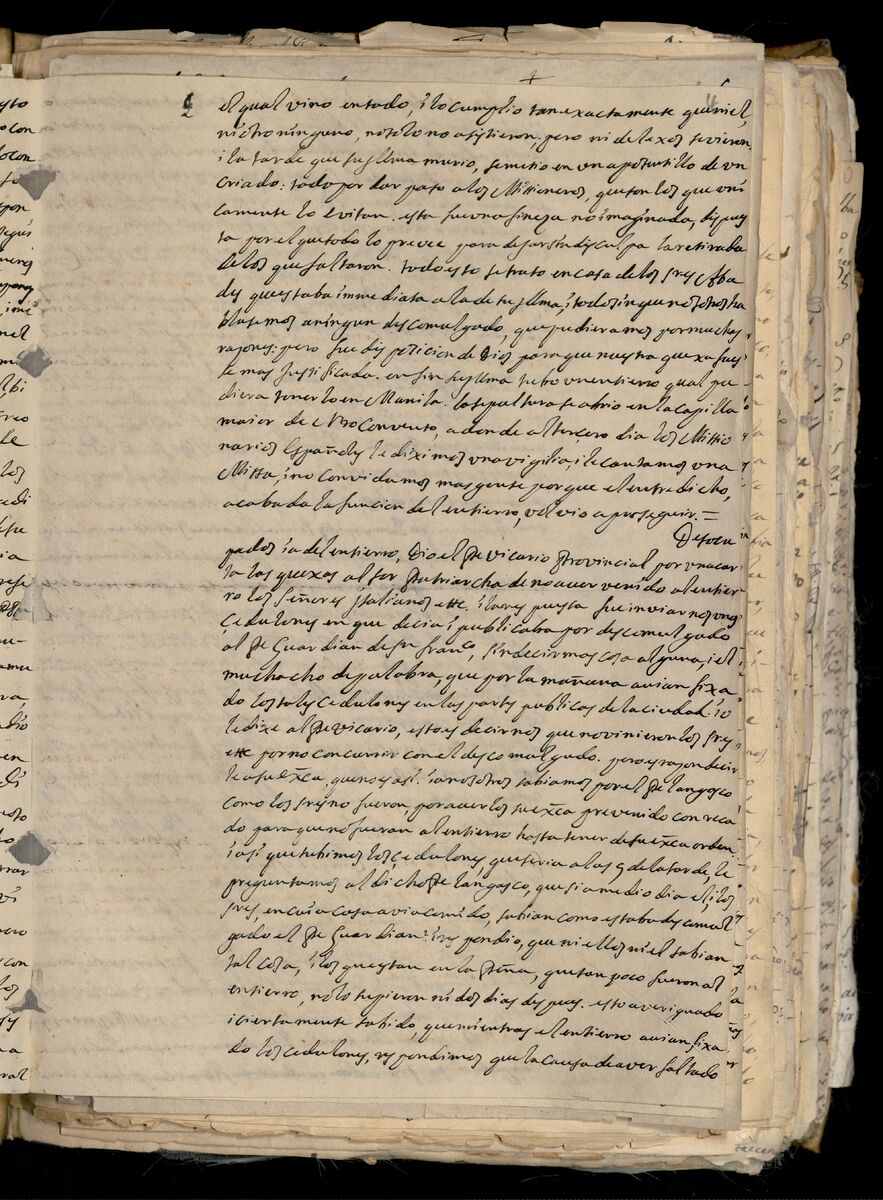 el qual vino en todo, i lo cumplio tan exactamente que ni el,
ni otro ninguno, no solo no asistieron. pero ni de lexos se vieron
i la tarde que su Illma murio, se metio en un aposentillo de un
criado: todo por dar paso a los Missioneros, que son los que uni
camente lo evitan. esta fue una fineza no imaginada, dispues
ta por el que todo lo prevee para dejar sin disculpa la retirada
de los que faltaron. todo esto se trato en casa de los sres Aba
des que estaba immediata a la de su Illma, i todo sin que nosotros ha
blasemos a ningun descomulgado, que pudieramos por muchas
rasones: pero fue disposicion de Dios para que nuestra quexa fues
se mas justificada. en fin su Illma tubo un entierro qual pu
diera tenerlo en Manila. la sepultura se abrio en la capilla
maior de Nro Convento, a donde al tercero dia los Missio
narios Españoles le diximos una vigilia, i le cantamos una
Missa, i no convidamos mas gente porque el entredicho,
acabada la funcion del entierro, volvio a proseguir. =
Desocu
pados ia del entierro, dio el Pe Vicario Provincial por una car
ta las quexas al sor Patriarcha de no aver venido al entier
ro los Señores Italianos etc. i la respuesta fue inviarnos unos
Cedulones en que decia i publicaba por descomulgado
al Pe Guardian de Sn Franco, sin decir mas cosa alguna, i el
muchacho de palabra, que por la mañana avian fixa
do los tales Cedulones en las partes publicas de la ciudad. io
le dixe al Pe Vicario, esto es decirnos que no vinieron los sres
etc por no concurrir con el descomulgado. pero es rason decir
le a su Exca, que no es asi. ia nosotros sabiamos por el Pe Langasco
como los sres no fueron, por averlos su Exca prevenido con reca
do para que no fueran al entierro hasta tener de su Exca orden
i asi que tubimos los cedulones, que seria a las 9 de la tarde, le
preguntamos al dicho Pe Langasco, que si a medio dia el, i los
sres, en cuia casa avia comido, sabian como estaba descomul
gado el Pe Guardian? i respondio, que ni ellos ni el sabian
tal cosa, i los que estan en la Peña, que tan poco fueron al
entierro, no lo supieron ni dos dias despues. esto averiguado
i ciertamente sabido, que mientras el entierro avian fixa
do los cedulones, respondimos que la causa de aver faltado